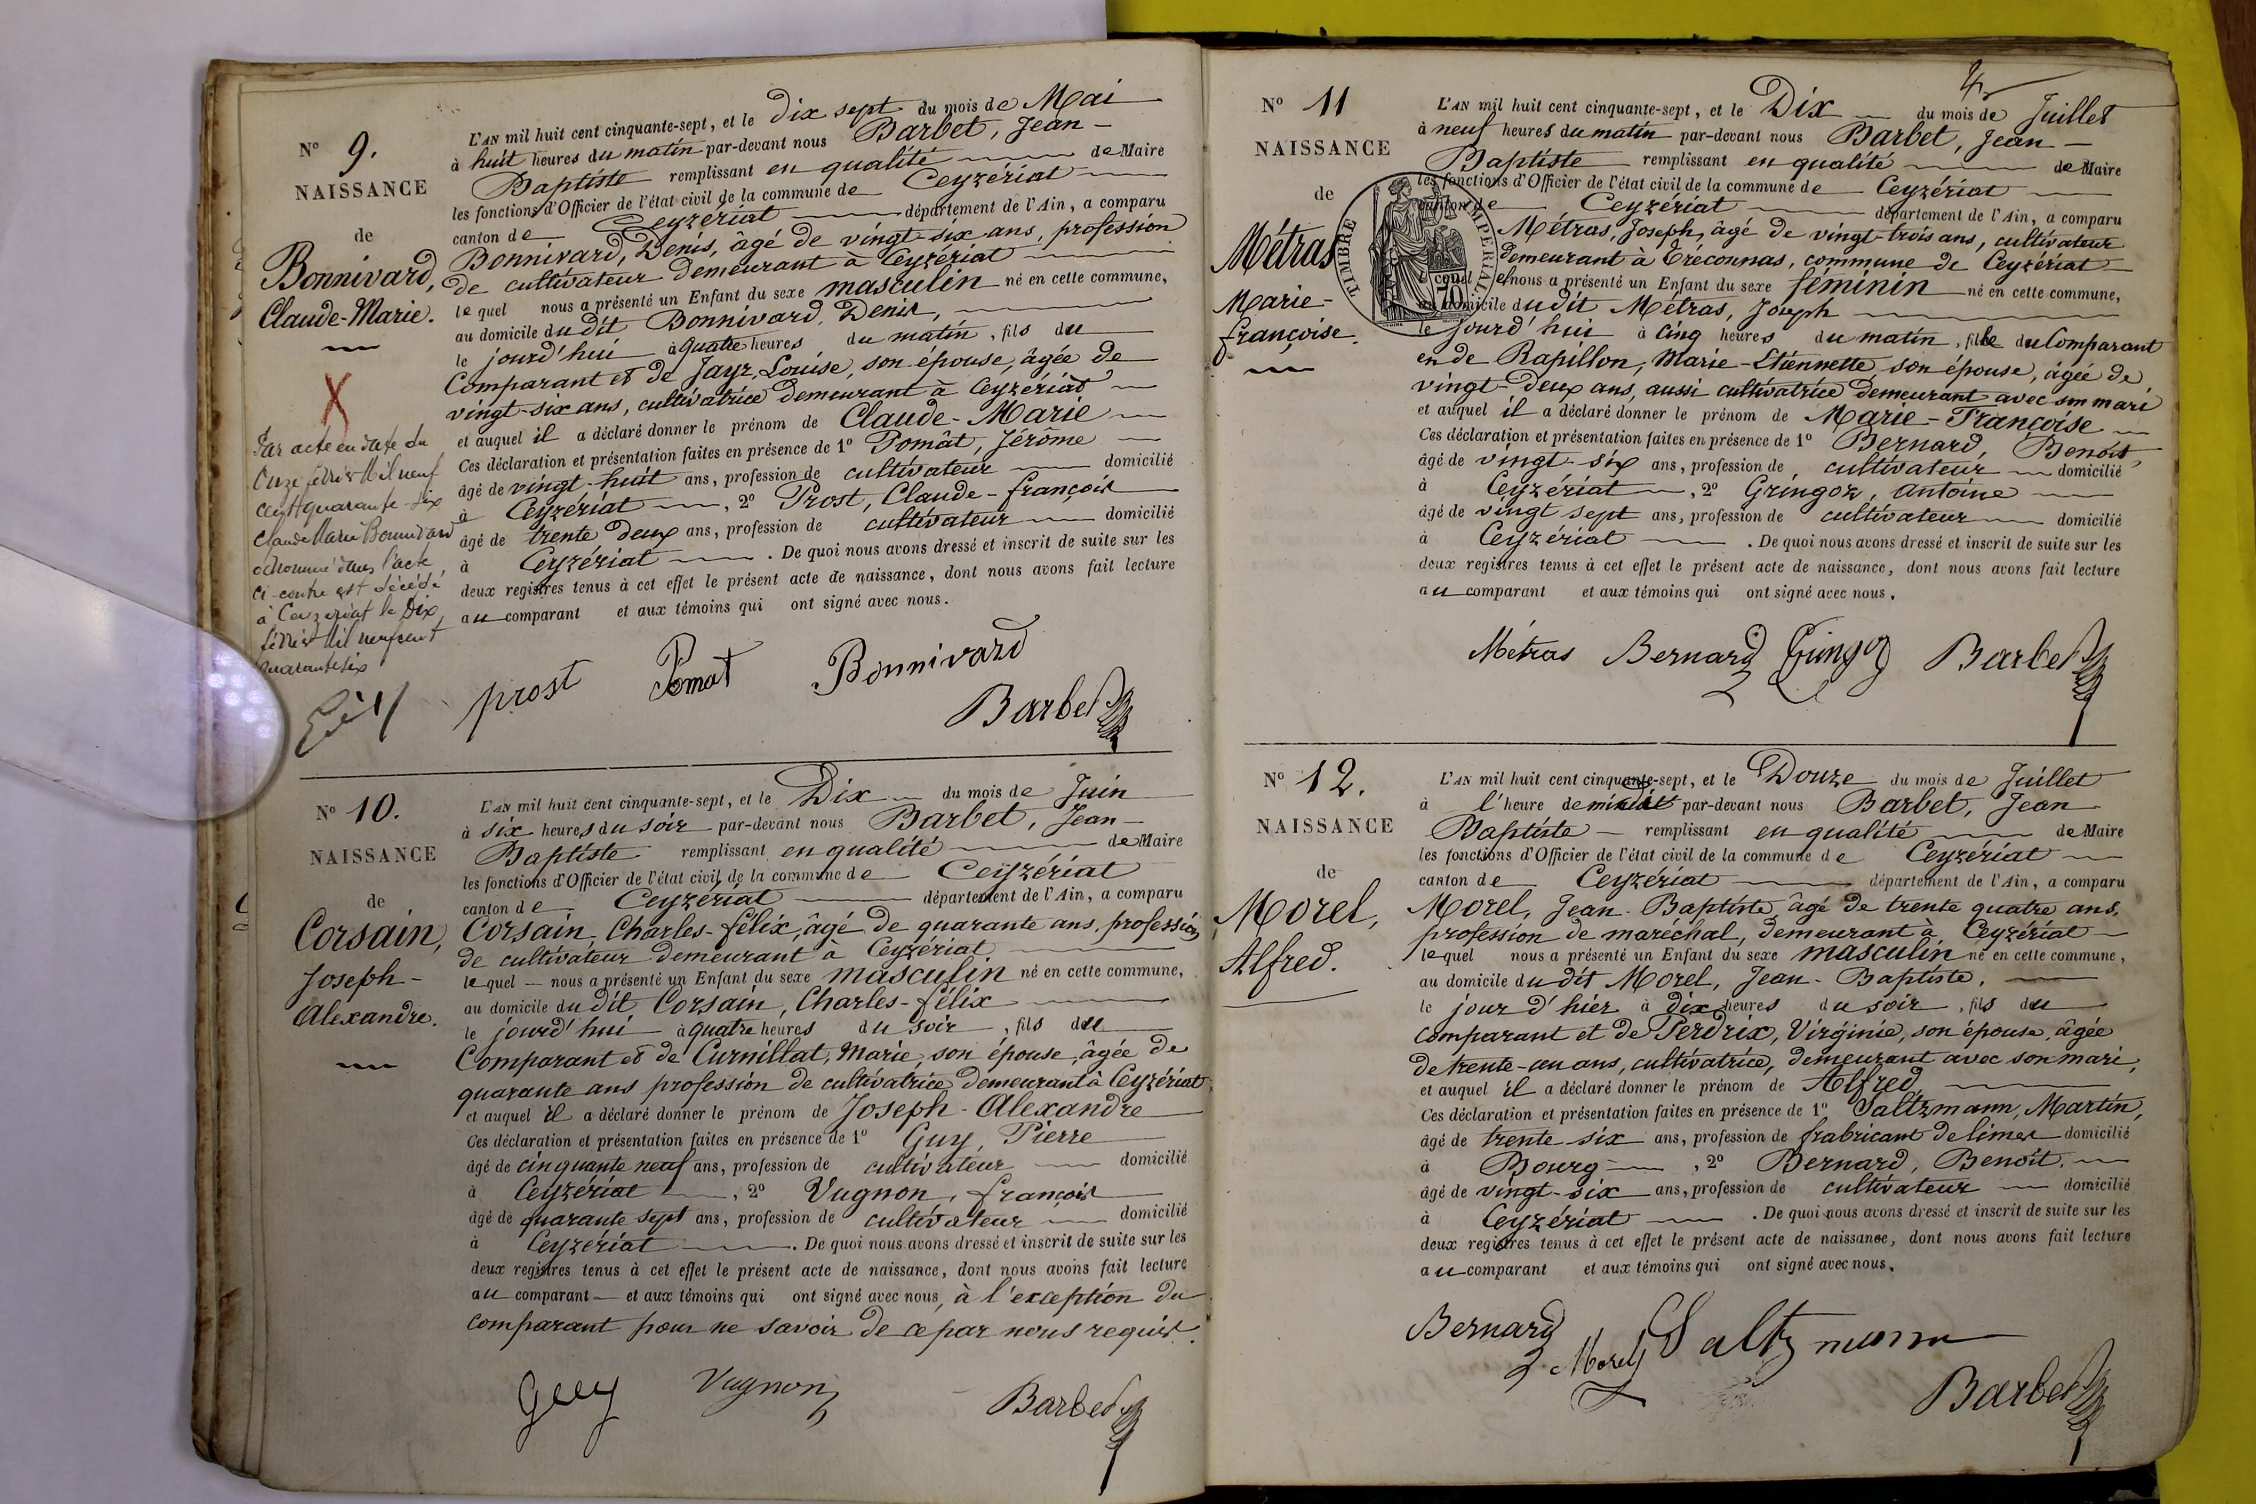 N° 9.
NAISSANCE
de
Bonnivard,
Claude-Marie.
X
Par acte en date du
Onze février Mil neuf
cent quarante-six
Claude Marie Bonnivard
dénommé dans l'acte
ci-contre est décédé
à Ceyzériat le Dix
février Mil neuf cent
quarante six
L'AN mil huit cent cinquante-sept, et le Dix sept du mois de Mai
à huit heures du matin par-devant nous Barbet, Jean-
Baptiste remplissant en qualité de Maire
les fonctions d'Officier de l'état civil de la commune de Ceyzériat
canton de Ceyzériat département de l'Ain, a comparu
Bonnivard, Denis, âgé de vingt-six ans, profession
de cultivateur demeurant à Ceyzériat
lequel nous a présenté un Enfant du sexe masculin né en cette commune,
au domicile dudit Bonnivard, Denis,
le jourd'hui à quatre heures du matin, fils du
Comparant et de Jayr, Louise, son épouse, âgée de
vingt-six ans, cultivatrice demeurant à Ceyzériat
et auquel il a déclaré donner le prénom de Claude-Marie
Ces déclaration et présentation faites en présence de 1° Pomât, Jérôme
âgé de vingt-huit ans, profession de cultivateur domicilié
à Ceyzériat, 2° Prost, Claude-françois
âgé de trente deux ans, profession de cultivateur domicilié
à Ceyzériat. De quoi nous avons dressé et inscrit de suite sur les
deux registres tenus à cet effet le présent acte de naissance, dont nous avons fait lecture
au comparant et aux témoins qui ont signé avec nous.
prost Pomat Bonnivard
Barbet
N° 10.
NAISSANCE
de
Corsain,
Joseph-
Alexandre.
L'AN mil huit cent cinquante-sept, et le Dix du mois de Juin
à six heures du soir par-devant nous Barbet, Jean-
Baptiste remplissant en qualité de Maire
les fonctions d'Officier de l'état civil de la commune de Ceyzériat
canton de Ceyzériat département de l'Ain, a comparu
Corsain, Charles-félix, âgé de quarante ans, profession
de cultivateur demeurant à Ceyzériat
lequel nous a présenté un Enfant du sexe masculin né en cette commune,
au domicile dudit Corsain, Charles-félix
le jourd'hui à quatre heures du soir, fils du
Comparant et de Curnillat, Marie, son épouse, âgée de
quarante ans profession de cultivatrice demeurant à Ceyzériat,
et auquel il a déclaré donner le prénom de Joseph-Alexandre
Ces déclaration et présentation faites en présence de 1° Guy, Pierre
âgé de cinquante neuf ans, profession de cultivateur domicilié
à Ceyzériat, 2° Vugnon, françois
âgé de quarante sept ans, profession de cultivateur domicilié
à Ceyzériat. De quoi nous avons dressé et inscrit de suite sur les
deux registres tenus à cet effet le présent acte de naissance, dont nous avons fait lecture
au comparant et aux témoins qui ont signé avec nous, à l'exception du
comparant pour ne savoir de ce par nous requis.
Guy Vugnon
Barbet
N° 11
NAISSANCE
de
Métras
Marie-
françoise.
TIMBRE IMPERIAL
L'AN mil huit cent cinquante-sept, et le Dix du mois de Juillet
à neuf heures du matin par-devant nous Barbet, Jean-
Baptiste remplissant en qualité de Maire
les fonctions d'Officier de l'état civil de la commune de Ceyzériat
canton de Ceyzériat département de l'Ain, a comparu
Métras, Joseph, âgé de vingt-trois ans, cultivateur
demeurant à Tréconnas, commune de Ceyzériat
lequel nous a présenté un Enfant du sexe féminin né en cette commune,
au domicile dudit Métras, Joseph
le jourd'hui à cinq heures du matin, fille du Comparant
et de Rapillon, Marie-Etiennette son épouse, âgée de
vingt-deux ans, aussi cultivatrice demeurant avec son mari
et auquel il a déclaré donner le prénom de Marie-Françoise
Ces déclaration et présentation faites en présence de 1° Bernard, Benoît,
âgé de vingt-six ans, profession de cultivateur domicilié
à Ceyzériat, 2° Gringoz, Antoine
âgé de vingt sept ans, profession de cultivateur domicilié
à Ceyzériat. De quoi nous avons dressé et inscrit de suite sur les
deux registres tenus à cet effet le présent acte de naissance, dont nous avons fait lecture
au comparant et aux témoins qui ont signé avec nous.
Métras Bernard Gringoz Barbet
N° 12.
NAISSANCE
de
Morel,
Alfred.
L'AN mil huit cent cinquante-sept, et le Douze du mois de Juillet
à l'heure de midi par-devant nous Barbet, Jean
Baptiste remplissant en qualité de Maire
les fonctions d'Officier de l'état civil de la commune de Ceyzériat
canton de Ceyzériat département de l'Ain, a comparu
Morel, Jean-Baptiste, âgé de trente quatre ans,
profession de maréchal, demeurant à Ceyzériat
lequel nous a présenté un Enfant du sexe masculin né en cette commune,
au domicile dudit Morel, Jean-Baptiste,
le jour d'hier à dix heures du soir, fils du
comparant et de Perdrix, Virginie, son épouse, âgée
de trente-un ans, cultivatrice, demeurant avec son mari,
et auquel il a déclaré donner le prénom de Alfred,
Ces déclaration et présentation faites en présence de 1° Saltzmann, Martin,
âgé de trente-six ans, profession de frabricant de limes domicilié
à Bourg, 2° Bernard, Benoît,
âgé de vingt-six ans, profession de cultivateur domicilié
à Ceyzériat. De quoi nous avons dressé et inscrit de suite sur les
deux registres tenus à cet effet le présent acte de naissance, dont nous avons fait lecture
au comparant et aux témoins qui ont signé avec nous.
Bernard Morel Saltzmann
Barbet